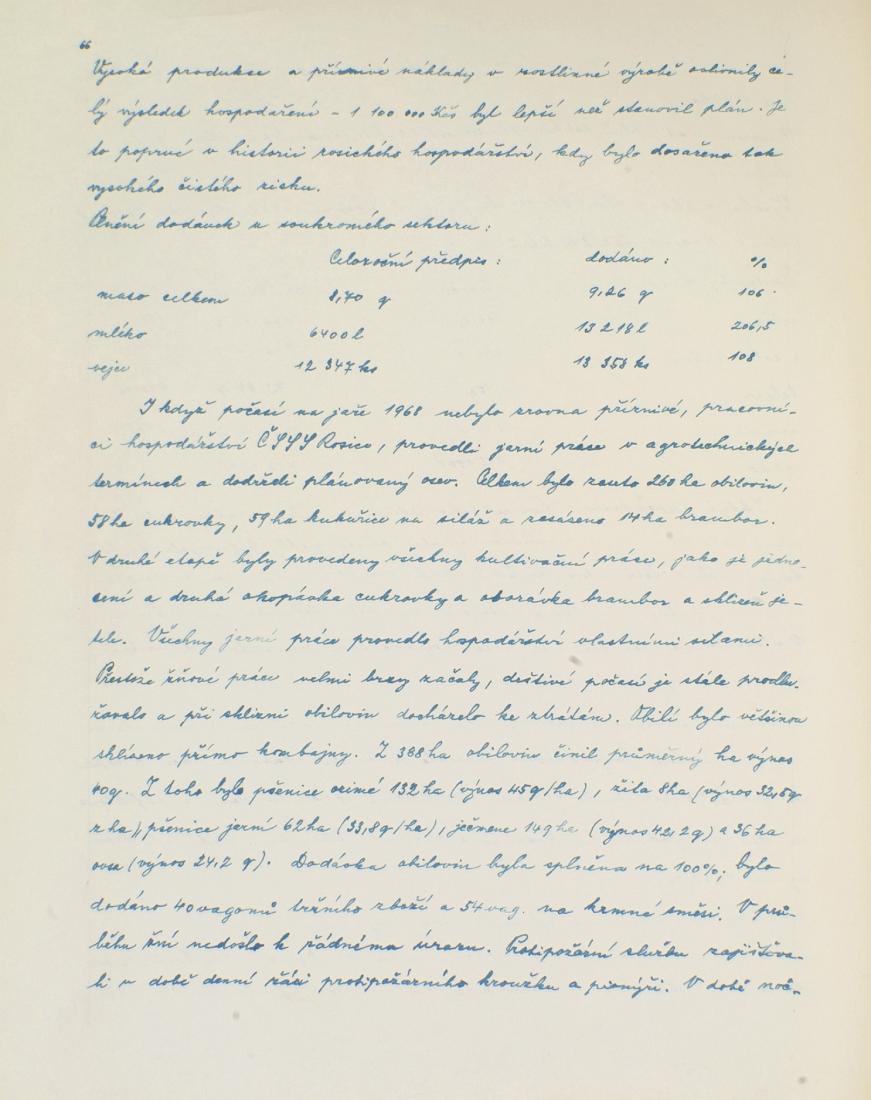 66
Vysoká produkce a příznivé náklady v rostlinné výrobě ovlivnily ce-
lý výsledek hospodaření - 1 100 000 Kčs byl lepší než stanovil plán. Je
to poprvé v historii rosického hospodářství, kdy bylo dosaženo tak
vysokého čistého zisku.
Plnění dodávek u soukromého sektoru:
Celoroční předpis: dodáno: %
maso celkem 8,70 q 9,26 q 106
mléko 6400 l 13 218 l 206,5
vejce 12 347 ks 13 358 ks 108
I když počasí na jaře 1968 nebylo zrovna příznivé, pracovní-
ci hospodářství ČSSS Rosice, provedli jarní práce v agrotechnických
termínech a dodrželi plánovaný osev. Celkem bylo zaseto 260 ha obilovin,
58 ha cukrovky, 59 ha kukuřice na siláž a zasázeno 14 ha brambor.
V druhé etapě byly provedeny všechny kultivační práce, jako je jedno-
cení a druhá okopávka cukrovky a oborávka brambor a sklizeň je-
tele. Všechny jarní práce provedlo hospodářství vlastními silami.
Přestože žňové práce velmi brzy začaly, deštivé počasí je stále prodlu-
žovalo a při sklizni obilovin docházelo ke ztrátám. Obilí bylo většinou
sklízeno přímo kombajny. Z 388 ha obilovin činil průměrný ha výnos
40 q. Z toho bylo pšenice ozimé 132 ha (výnos 45 q/ha), žita 8 ha (výnos 32,8 q
z ha), pšenice jarní 62 ha (33,8 q/ha), ječmene 149 ha (výnos 42,2 q) a 36 ha
ovsa (výnos 24,2 q). Dodávka obilovin byla splněna na 100%, bylo
dodáno 40 vagonů tržního zboží a 54 vag. na krmné směsi. V prů-
běhu žní nedošlo k žádnému úrazu. Protipožární službu zajišťova-
li v době denní žáci protipožárního kroužku a pionýři. V době noč-